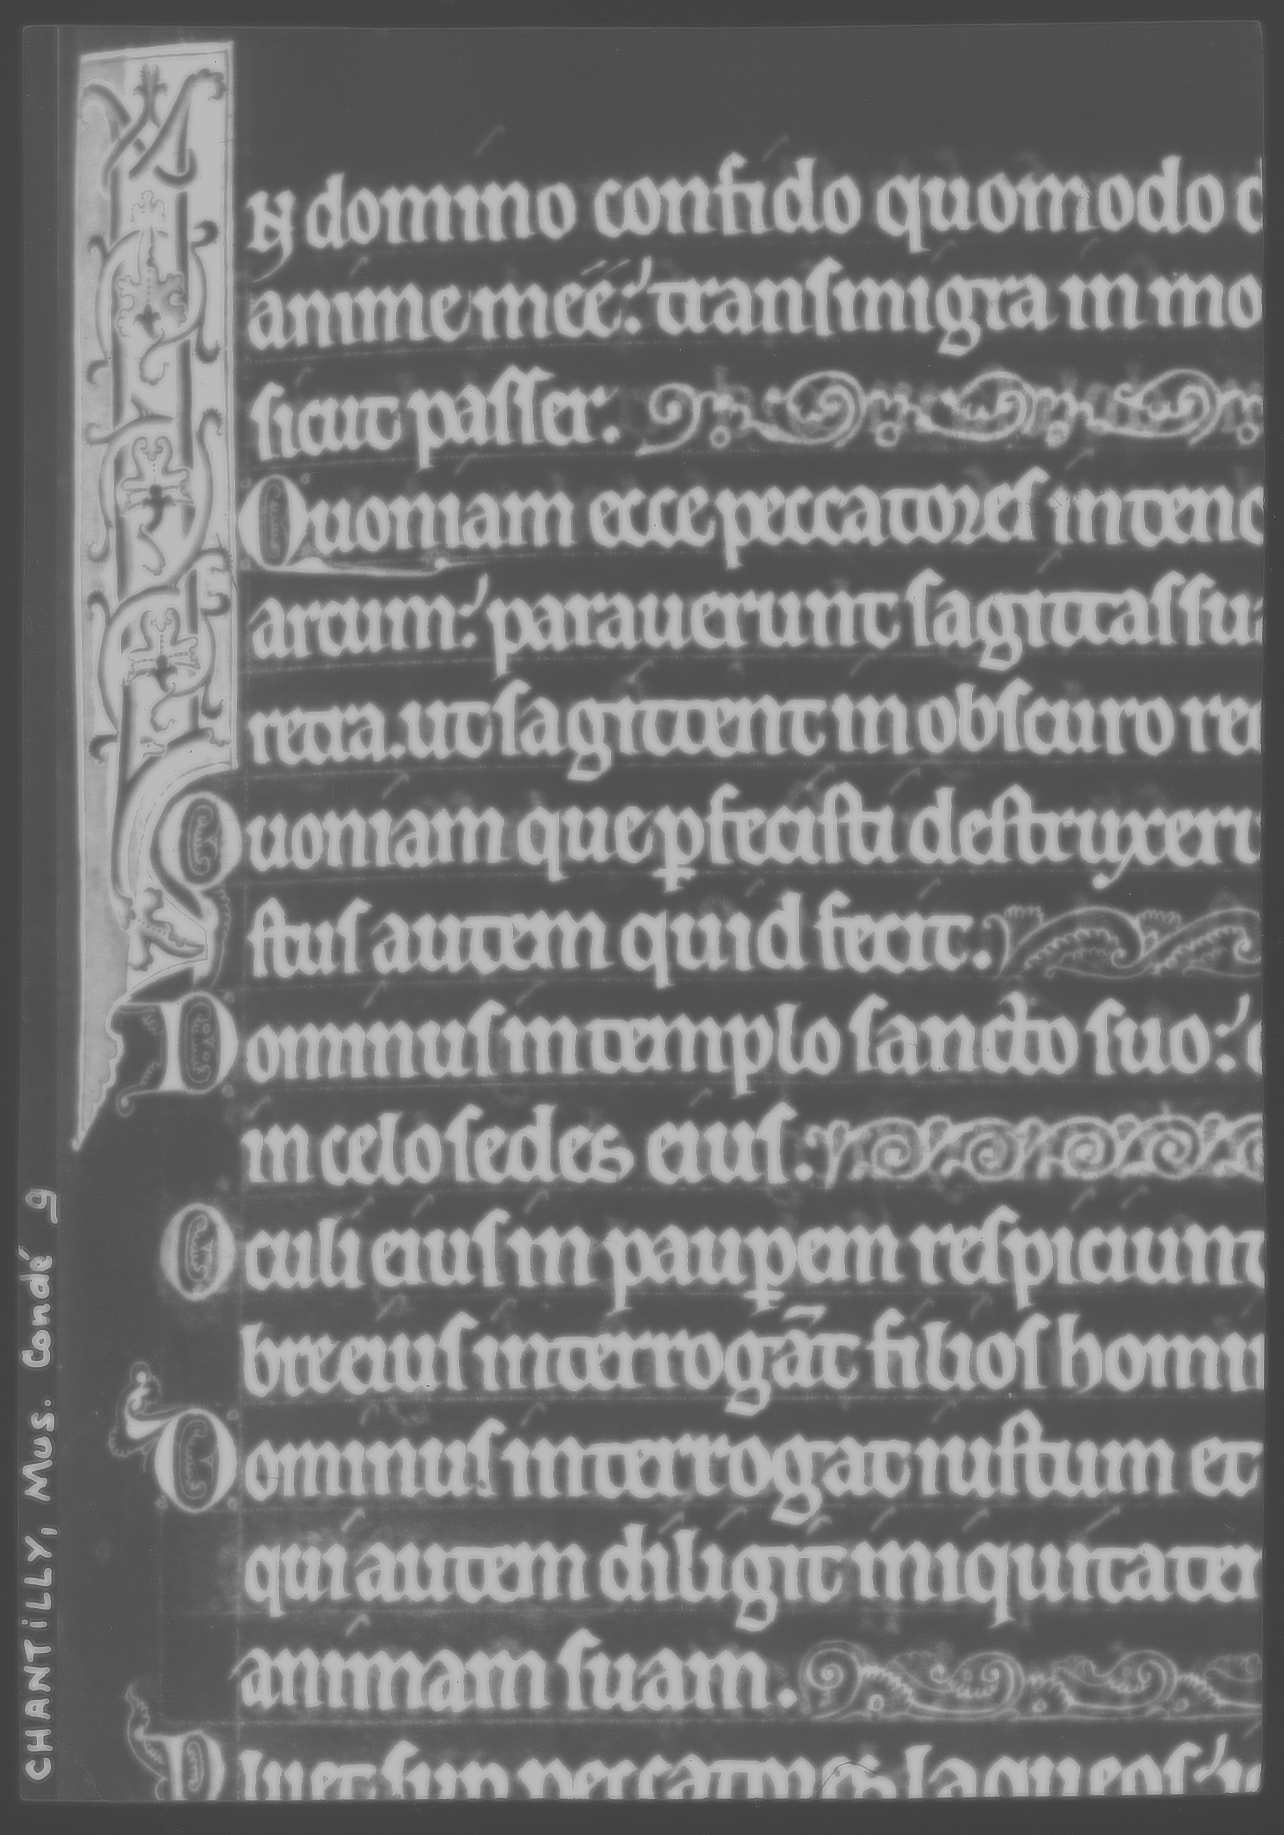 IN domino confido quomodo d
anime meę: transmigra in mo
sicut passer.
Quoniam ecce peccatores intend
arcum: parauerunt sagittas sua
retra. ut sagittent in obscuro rec
Quoniam que ꝑfecisti destruxeru
stus autem quid fecit.
Dominus in templo sancto suo:
in celo sedes eius.
Oculi eius in pauꝑem respiciunt
bre eius interrogāt filios homin
Dominus interrogat iustum et
qui autem diligit iniquitatem
animam suam.
Pluet sup peccatores laqueos:
CHANTILLY, Mus. Condé 9